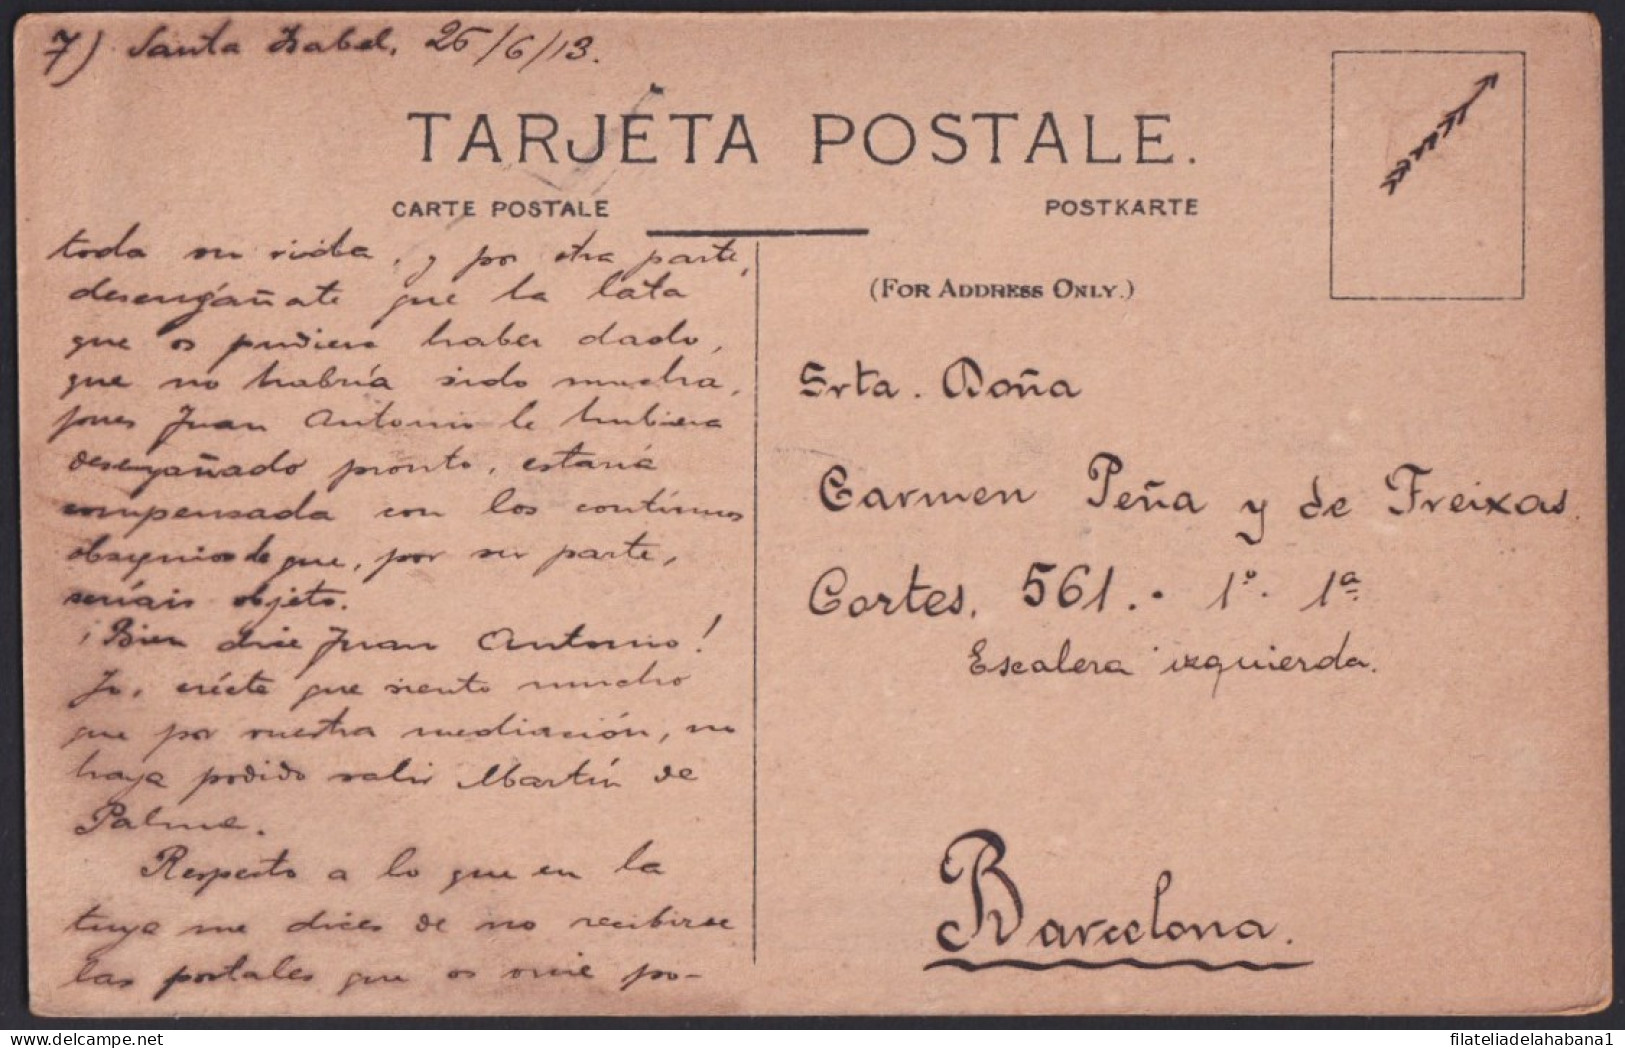 7) Santa Isabel, 25/6/13.
TARJETA POSTALE.
CARTE POSTALE
POSTKARTE
toda su vida, y por otra parte,
desengáñate que la lata
que os pudiera haber dado,
que no habría sido mucha,
pues Juan Antonio le hubiera
desengañado pronto, estaría
compensada con los continuos
obsequios de que, por su parte,
seríais objeto.
¡Bien dice Juan Antonio!
Yo, créete que siento mucho
que por vuestra mediación, no
haya podido salir Martín de
Palma.
Respecto a lo que en la
tuya me dices de no recibirse
las postales que os envie po-
(FOR ADDRESS ONLY.)
Srta. Doña
Carmen Peña y de Freixas.
Cortes, 561.. 1º. 1ª
Escalera izquierda.
Barcelona.
filateliadelahabana1